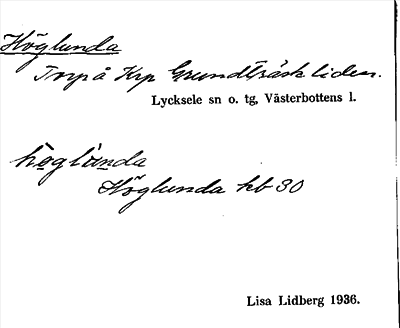 Höglunda
Torp å Krp Grundträskliden.
Lycksele sn o. tg, Västerbottens l.
höglùnda
Höglunda kb 30
Lisa Lidberg 1936.